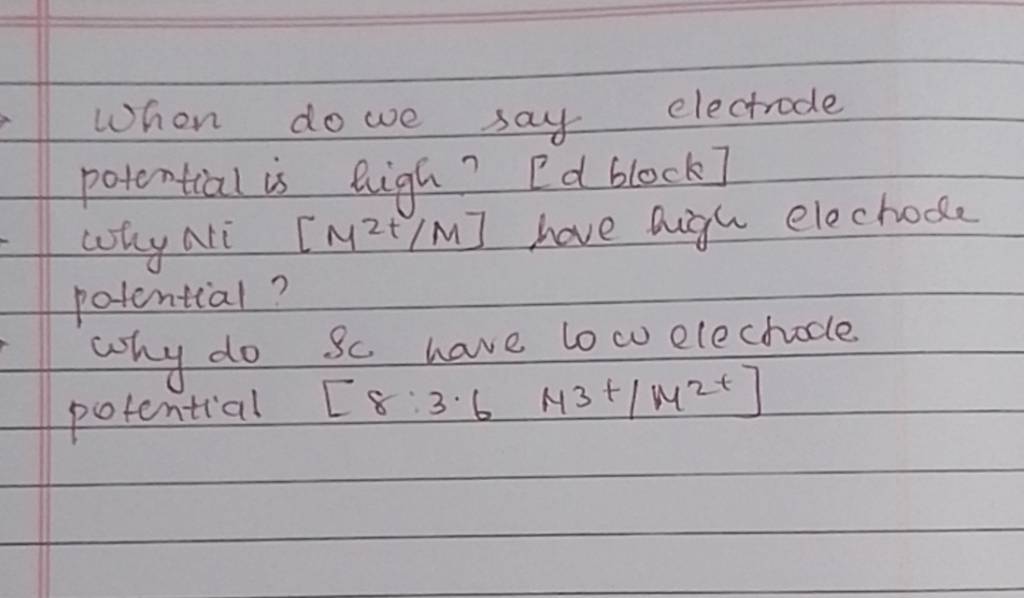 When do we say electrode
potential is high? [d block]
Why Ni [M2+/M] have high electrode
potential?
Why do Sc have low electrode
potential [8:3.6 M3+/M2+]